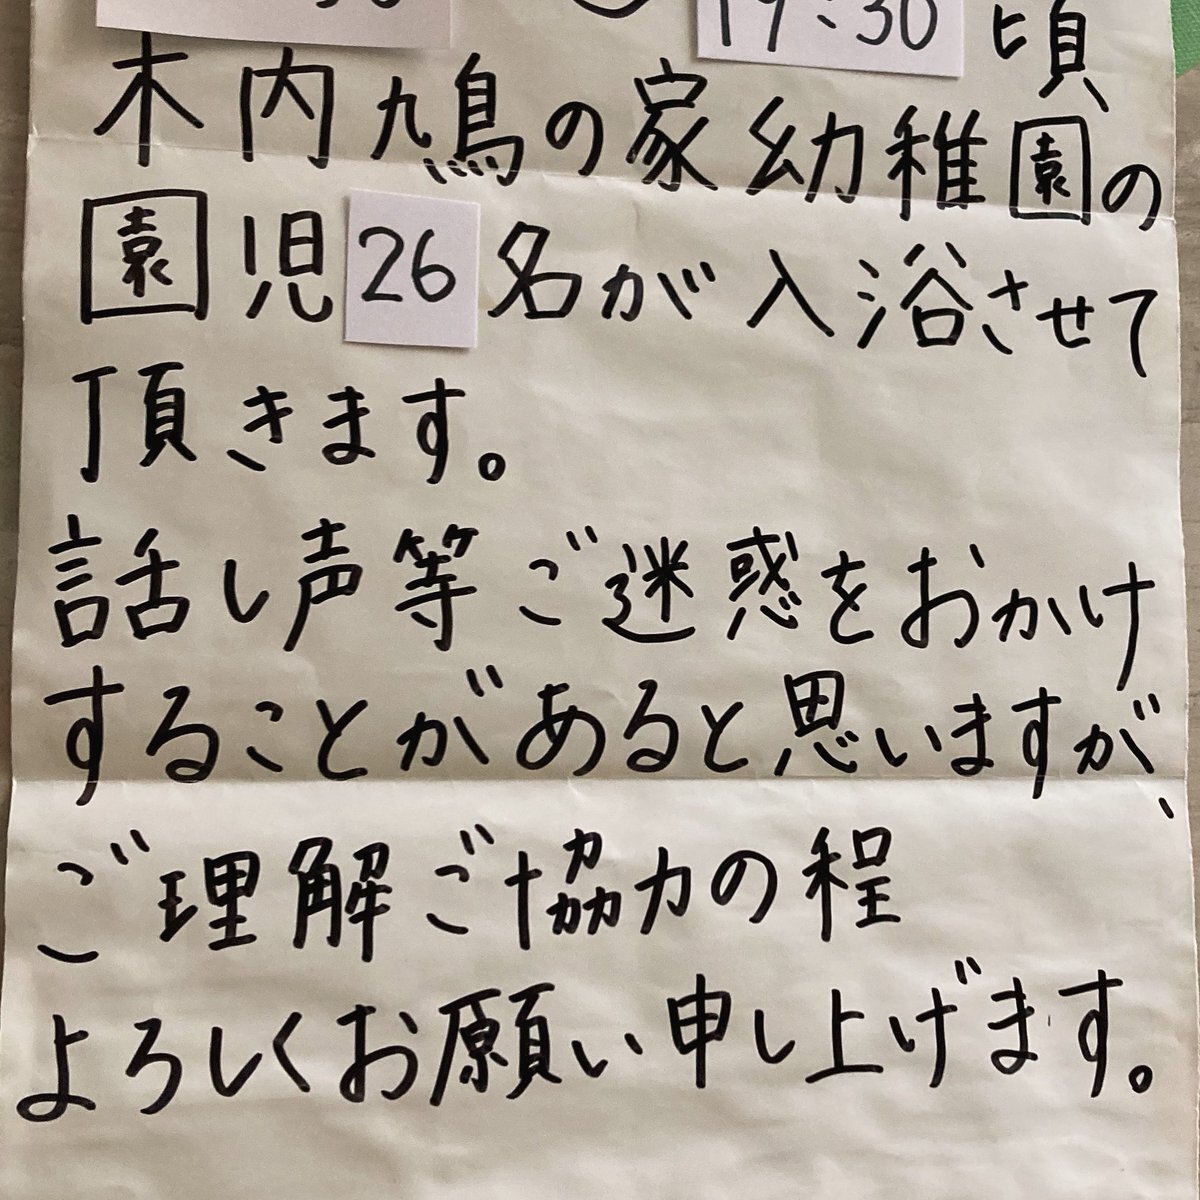 19:30 頃
木内鳩の家幼稚園の
園児26名が入浴させて
頂きます。
話し声等ご迷惑をおかけ
することがあると思いますが、
ご理解ご協力の程
よろしくお願い申し上げます。